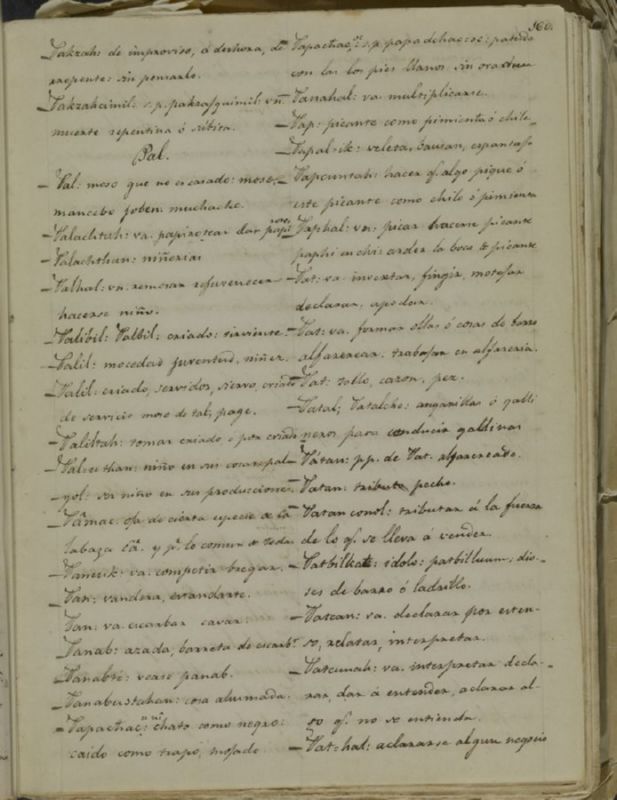 160.
Pakzah: de improviso, á deshora, de
repente: sin pensarlo.
Pakzahcimil: s.p. pakzahquimil: vn.
muerte repentina ó súbita.
Pal.
Pal: moso que no es casado: moso,
mancebo joben: muchacho.
Palachtah: va. papirotear dar papi
rotes.
Palachthan: niñerias
Palhal: vn. remosar rejuvenecer
hacerse niño.
Palibil: Palbil: criado: sirviente
Palil: mocedad juventud, niñez.
Palil: criado, servidor, siervo, criado
de servicio moso de tal; page.
Paliltah: tomar criado ó por criado
niño en sus
yol: ser niño en sus producciones.
Pámac: de cierta especie de
labaza y pr. lo comun
va. competir bregar.
Pan: vandera, estandarte.
Pan: va. escarbar cavar.
Panab: azada, barreta de escarbr.
Panabté: vease panab.
cosa ahumada.
chato como negro:
caido como trapo, mojado
s.p. papadchac=oc: patudo
con las los pies llanos sin
Panahal: va. multiplicarse.
Pap: picante como pimienta ó chile
Papal-ik: veleta, bausan, espantajo
Papcuntah: hacer qf. algo pique ó
esté picante como chile ó pimienta
Paphal: vn: picar hacerse picante
paphi en chi: arder la boca de picante
Pat: va. inventar, fingir, motejar
declarar, apodar.
Pat: va. formar ollas ó cosas de barro
alfarerear. trabajar en alfareria.
Pat: rollo, cazon, pez.
Patal; Patalche: anganillas ó galli
neros para conducir gallinas
Pátan: pp. de Pat. alfarereado.
Patan: tributo pecho.
Patan conol: tributar á la fuerza
de lo qf. se lleva á vender.
ídolo: patbilluum; dio-
ses de barro ó ladrillo.
Patcan: va. declarar por esten-
so, relatar, interpretar.
Patcunah: va. interpretar decla-
rar, dar á entender, aclarar al-
go qf. no se entienda.
Pat-hal: aclararse algun negocio